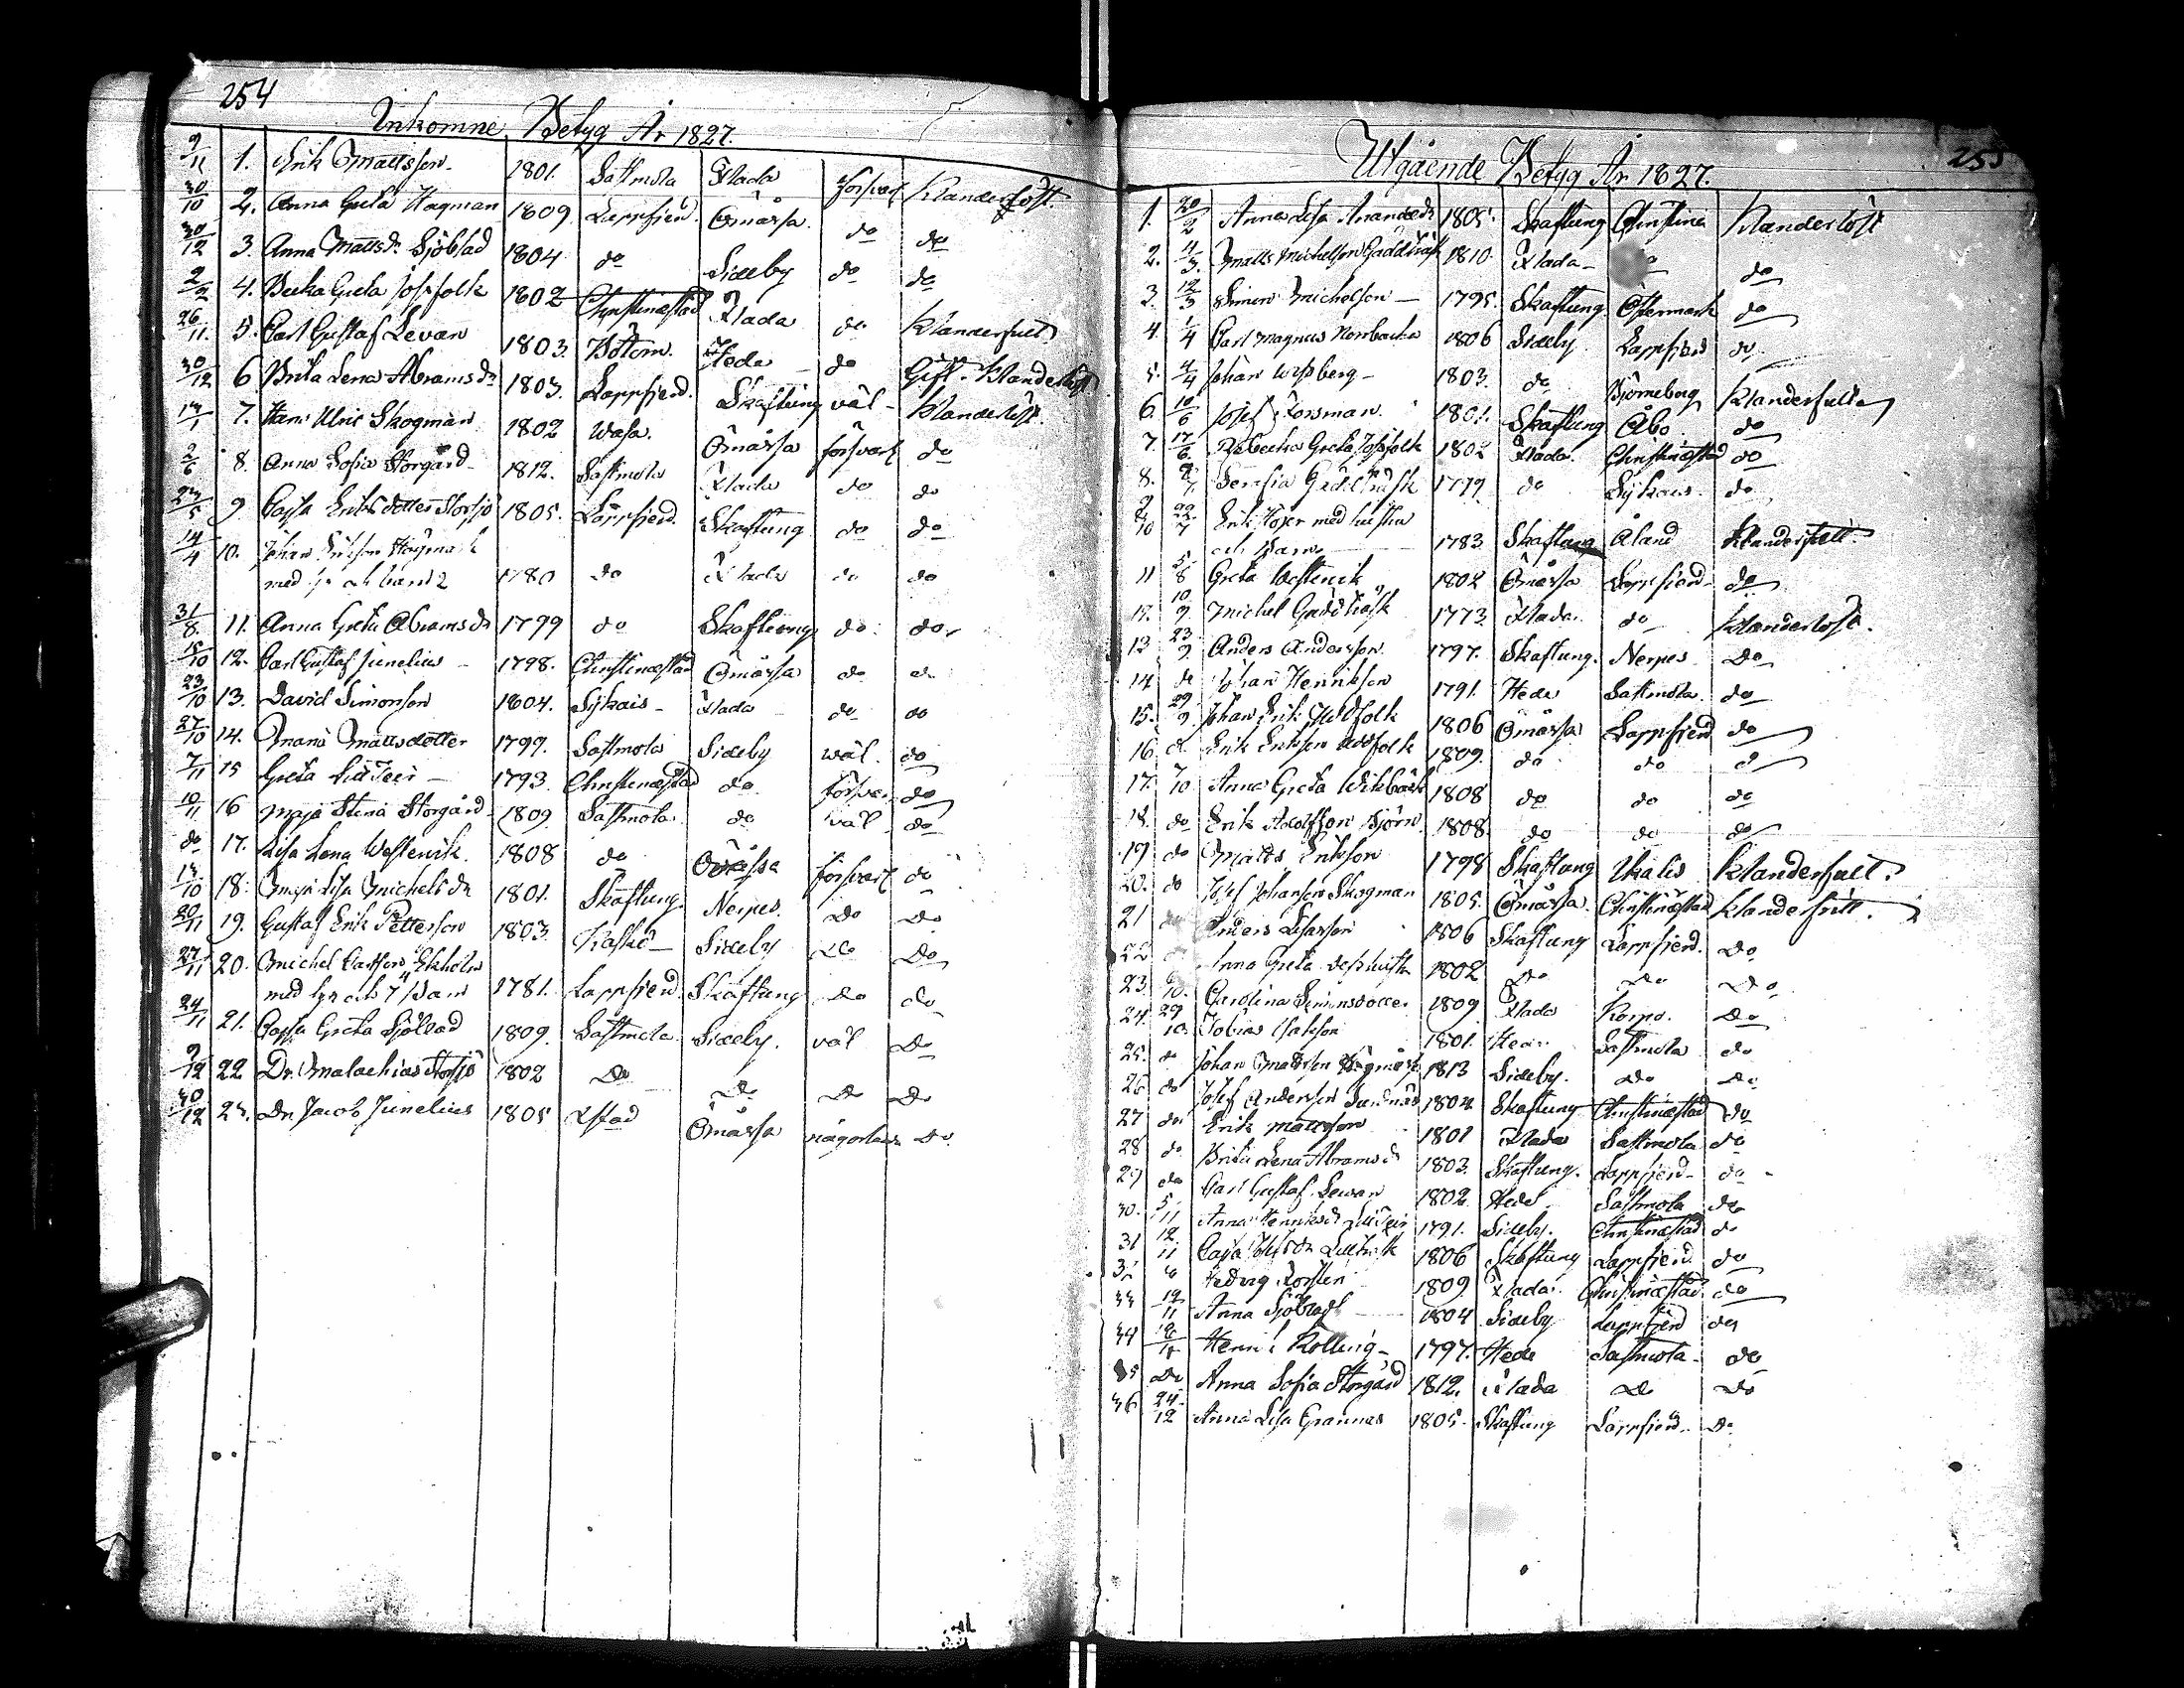 254
Inkomne Betyg År 1827.
9/11 1. Erik Mattsson 1801. Sastmola Xlada försvarl Klanderlöst.
30/10 2. Anna Greta Hagman 1809. Lappfjerd. Ömåssa do do
30/12 3. Anna Mattsdr Sjöblad 1804 do Sideby do do
4. Becka Greta Josfolk 1802 Christinæstad Xlada do Klanderfult
26/11. 5. Carl Gustaf Levan 1803. Bötom. Heda do Gift. Klanderlöst
30/12 6 Brita Lena Abramsdr 1803. Lappfjerd. Skaftung väl Klanderlöst.
7. Hans Ulric Skogman 1802 Wasa. Ömåssa försvarl do
2/6 8. Anna Sofia Storgård 1812. Sastmola Xlada do do
9 Cajsa Eriksdotter Storsjö 1805. Lappfjerd. Skaftung do do
14/4 10. Johan Erikson Hagmark
med h. och barn 2 1780 do Xlada do do
31/8. 11. Anna Greta Abramsdr 1799 do Skaftung do. do.
15/10 12. Carl Gustaf Junelius 1798. Christinæstad Ömåssa do do
23/10 13. David Simonson 1804. Sjkais Xlada do do
27/10 14. Maria Mattsdotter 1799. Sastmola Sideby wäl. do
7/11 15 Greta 1793. Christinæstad do försvar do
10/11 16 Maja Stina Storgård 1809 Sastmola. do väl do
do 17. Lisa Lena Westervik. 1808 do Ömåssa försvarl do
18. Maja Lisa Michelsdr 1801. Skaftung. Nerpes. Do Do
20/11 19. Gustaf Erik Petterson 1803. Kaskö Sideby Do Do
27/11 20. Michel Carlson Ekholm
med hr och 7 barn 1781. Lappfjerd Skaftung Do do
24/11 21. Cajsa Greta Sjöblad 1809. Sastmola Sideby. väl Do
9/12 22 Dr. Malachias Storsjö 1802 Do Do Do Do
30/12 23. Dr. Jacob Junelius 1805 Xstad Ömåssa någorlunda Do.
255
Utgående Betyg År 1827.
1. 20/2 Anna Lisa 1805. Skaftung Christina Klanderlöst
2. 4/3. Matts Michelson Gäddträsk 1810. Xlada do
3. 12/3 Simon Michelson 1795. Skaftung Östermark do
4. 1/4 Carl Magnus Norrbacka 1806 Sideby. Lappfjerd do
5. 4/4 Johan Wessberg 1803. do Björneborg Klanderfult
6. 10/6 Josef Forsman. 1801. Skaftung Åbo do
7. 17/6. Rebecka Greta Josfolk 1802 Xlada. Christinæstad do
8. Serafia Gäddträsk 1779 do Sjkais. do
9. 10 22/7 Erik Höijer med hustru
och barn 1783 Skaftung Åland Klanderfritt.
11 5/8 Greta Westervik 1802 Ömåssa Lappfjerd do
12. 10/9 Michel Gäddträsk 1773. Xlada. do Klanderlöst.
13 23/9 Anders Anderson. 1797. Skaftung. Nerpes Do
14 do Johan Henrikson 1791. Heda Sastmola do
15. 29/9. Johan Erik 1806 Ömåssa Lappfjerd do
16 d. Erik Erikson 1809. do do d
17. 7/10 Anna Greta Wikbäck 1808 do do do
18. do Erik Adolfson Björn 1808. do do do
19 do Matts Erikson 1798 Skaftung Ikalis Klanderfritt.
20. do Josef Johanson Skogman 1805. Ömåssa. Christinæstad Klanderfritt.
21 do Anders 1806 Skaftung Lappfjerd. Do
22 Anna Greta dess hustru 1802 Do Do Do
23. Carolina Simonsdotter 1809 Xlada Korpo. Do
24. 29/10. Tobias Isakson 1801. Heda Sastmola do
25. do Johan Mattson Hagmark 1813 Sideby. Do Do
26 do Josef Anderson Sundnäs 1804 Skaftung Christinæstad do
27 do Erik Mattsson 1801 Xlada Sastmola do
28 do Brita Lena Abramsd 1803. Skaftung. Lappfjerd do
29 do Carl Gustaf Lewan 1802 Hede Sastmola do
30. 5/11 Anna Henriksdr 1791. Sideby. Christinæstad do
31 12/11 Cajsa Lillträsk 1806 Skaftung Lappfjerd. do
32 Hedvig Forsten 1809 Xlada. Christinæstad do
33 19/11 Anna Sjöblad 1804 Sideby Lappfjerd do
34 Henric Kolling 1797. Hede Sastmola do
35 Do Anna Sofia Storgård 1812. Xlada Do Do
36 24/12 Anna Lisa Grannas 1805. Skaftung Lappfjerd. Do